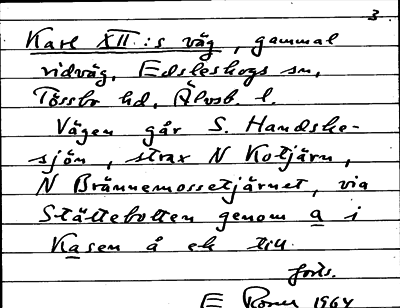 3
Karl XII:s väg, gammal
ridväg, Edsleskogs sn,
Tössbo hd, Älvsb. l.
Vägen går S. Handske-
sjön, strax N Kotjärn,
N Brännemossetjärnet, via
Stättebolten genom a i
Kasen å ek till
forts.
E 1964